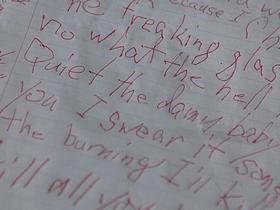 because I
he freaking glas
no what the hell
Quiet the damn baby
you I swear if som
the burning I'll k
ill all you